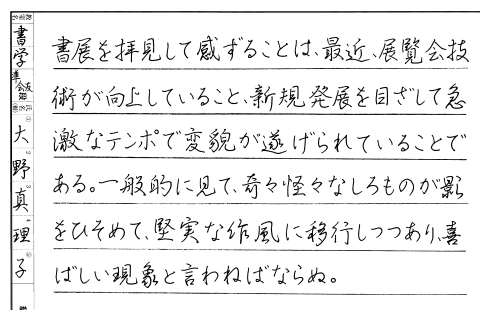 書展を拝見して感ずることは、最近、展覧会技
術が向上していること、新規発展を目ざして急
激なテンポで変貌が遂げられていることで
ある。一般的に見て、奇々怪々なしろものが影
をひそめて、堅実な作風に移行しつつあり、喜
ばしい現象と言わねばならぬ。
書学
準
会友
殿
大野真理子